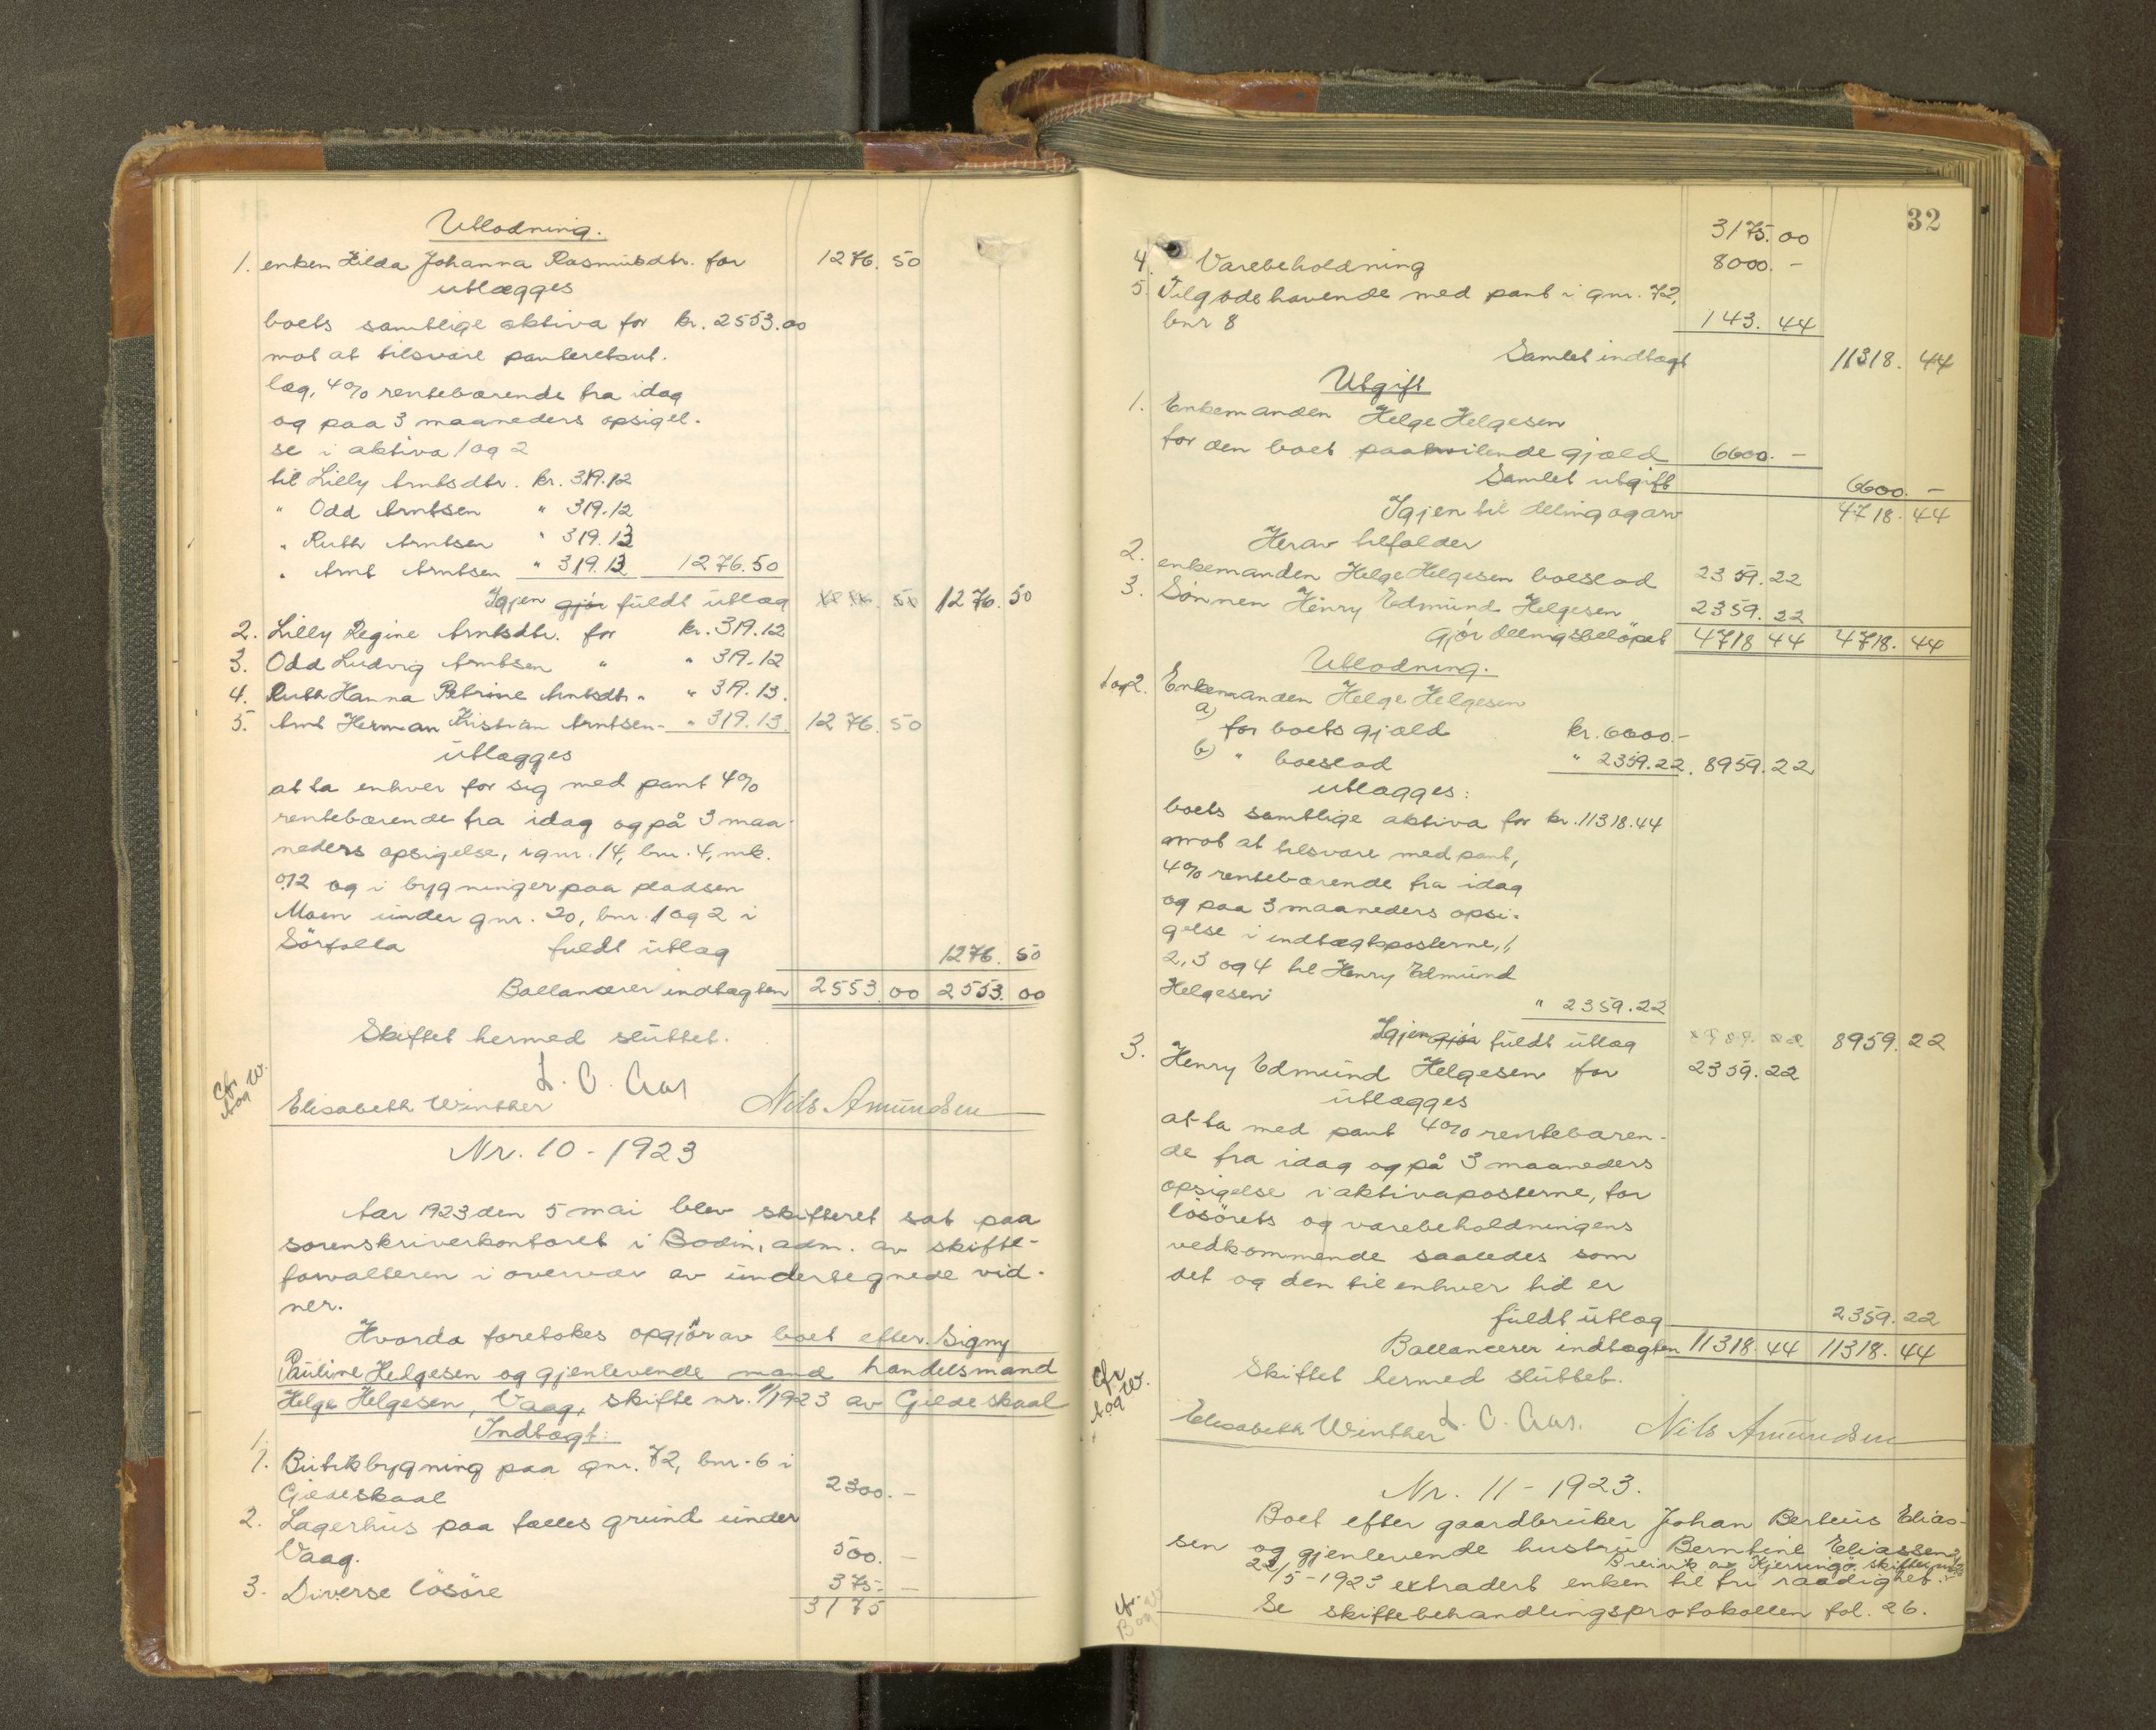 Utlodning.
1. enken Hilda Johanna Rasmusdtr. for 1276.50
utlægges
boets samtlige aktiva for kr. 2553.00
mot at tilsvare panteretsut-
læg, 4% rentebærende fra idag
og paa 3 maaneders opsigel-
se i aktiva 1 og 2
til Lilly Arntsdtr. kr. 319.12
" Odd Arntsen " 319.12
" Ruth Arntsen " 319.13
" Arnt Arntsen " 319.13 1276.50
Igjen gjör fuldt utlæg 1276.50
2. Lilly Regine Arntsdtr. for kr. 319.12
3. Odd Ludvig Arntsen " " 319.12
4. Ruth Hanna Petrine Arntsdtr. " " 319.13.
5. Arnt Herman Kristian Arntsen - " 319.13. 1276.50
utlægges
at ta enhver for sig med pant 4%
rentebærende fra idag og på 3 maa-
neders opsigelse, i gnr. 14, bnr. 4, mk.
0.12 og i bygninger paa pladsen
Moen under gnr. 20, bnr. 1 og 2 i
Sörfolla fuldt utlæg 1276.50
Ballancerer indtægten 2553.00 2553.00
Skiftet hermed sluttet.
Cfr. A og W.
L. O. Aas
Elisabeth Winther Nils Amundsen
Nr. 10 - 1923
Aar 1923 den 5 mai blev skifteret sat paa
sorenskriverkontoret i Bodin, adm. av skifte-
forvalteren i overvær av undertegnede vid-
ner.
Hvorda foretokes opgjör av boet efter Signy
Pauline Helgesen og gjenlevende mand handelsmand
Helge Helgesen, Vaag, skifte nr. 1/1923 av Gildeskaal
Indtægt:
1. Butikbygning paa gnr. 72, bnr. 6 i
Gildeskaal 2300. -
2. Lagerhus paa fælles grund under
Vaag. 500. -
3. Diverse lösöre 375. -
3175
32
3175.00
4. Varebeholdning 8000. -
5. Tilgodehavende med pant i gnr. 72,
bnr 8 143.44
Samlet indtægt 11318.44
Utgift
1. Enkemanden Helge Helgesen
for den boet paahvilende gjæld 6600. -
Samlet utgift 6600. -
Igjen til deling og arv 4718.44
Herav tilfalder
2. enkemanden Helge Helgesen boeslod 2359.22
3. Sönnen Henry Edmund Helgesen 2359.22
gjör delingsbelöpet 4718 44 4718.44
Utlodning.
1 og 2. Enkemanden Helge Helgesen
a) for boets gjæld kr. 6600.-
b) " boeslod " 2359.22. 8959.22
utlægges:
boets samtlige aktiva for kr. 11318.44
mot at tilsvare med pant,
4% rentebærende fra idag
og paa 3 maaneders opsi-
gelse i indtægtsposterne, 1,
2, 3 og 4 til Henry Edmund
Helgesen: " 2359.22
Igjen gjör fuldt utlæg 8959.22
3. Henry Edmund Helgesen for 2359.22
utlægges
at ta med pant 4% rentebæren-
de fra idag og på 3 maaneders
opsigelse i aktivaposterne, for
lösörets og varebeholdningens
vedkommende saaledes som
det og den til enhver tid er
fuldt utlæg 2359.22
Ballancerer indtægten 11318.44 11318.44
Skiftet hermed sluttet.
Cfr. A og W.
Elisabeth Winther L. O. Aas. Nils Amundsen
Nr. 11 - 1923.
Boet efter gaardbruker Johan Berteus Elias-
sen og gjenlevende hustru Berntine Eliassen
Breivik av Kjerringö skifte
22/5 - 1923 extradert enken til fri raadighet.
Se skiftebehandlingsprotokollen fol. 26.
Cfr.
B og W